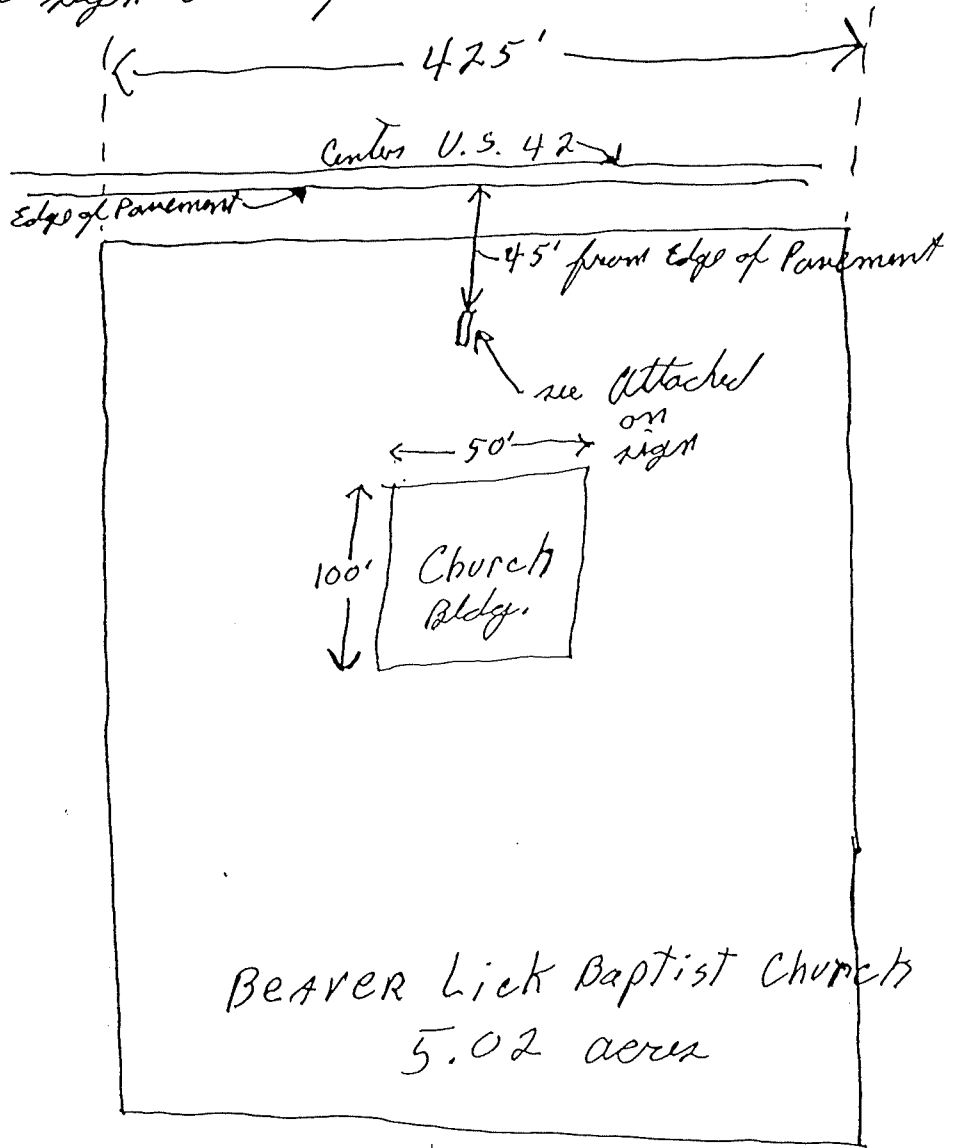 sign
425'
Center U.S. 42
Edge of Pavement
45' from Edge of Pavement
see Attached
on
sign
50'
100'
Church
Bldg.
BEAVER Lick Baptist Church
5.02 acres